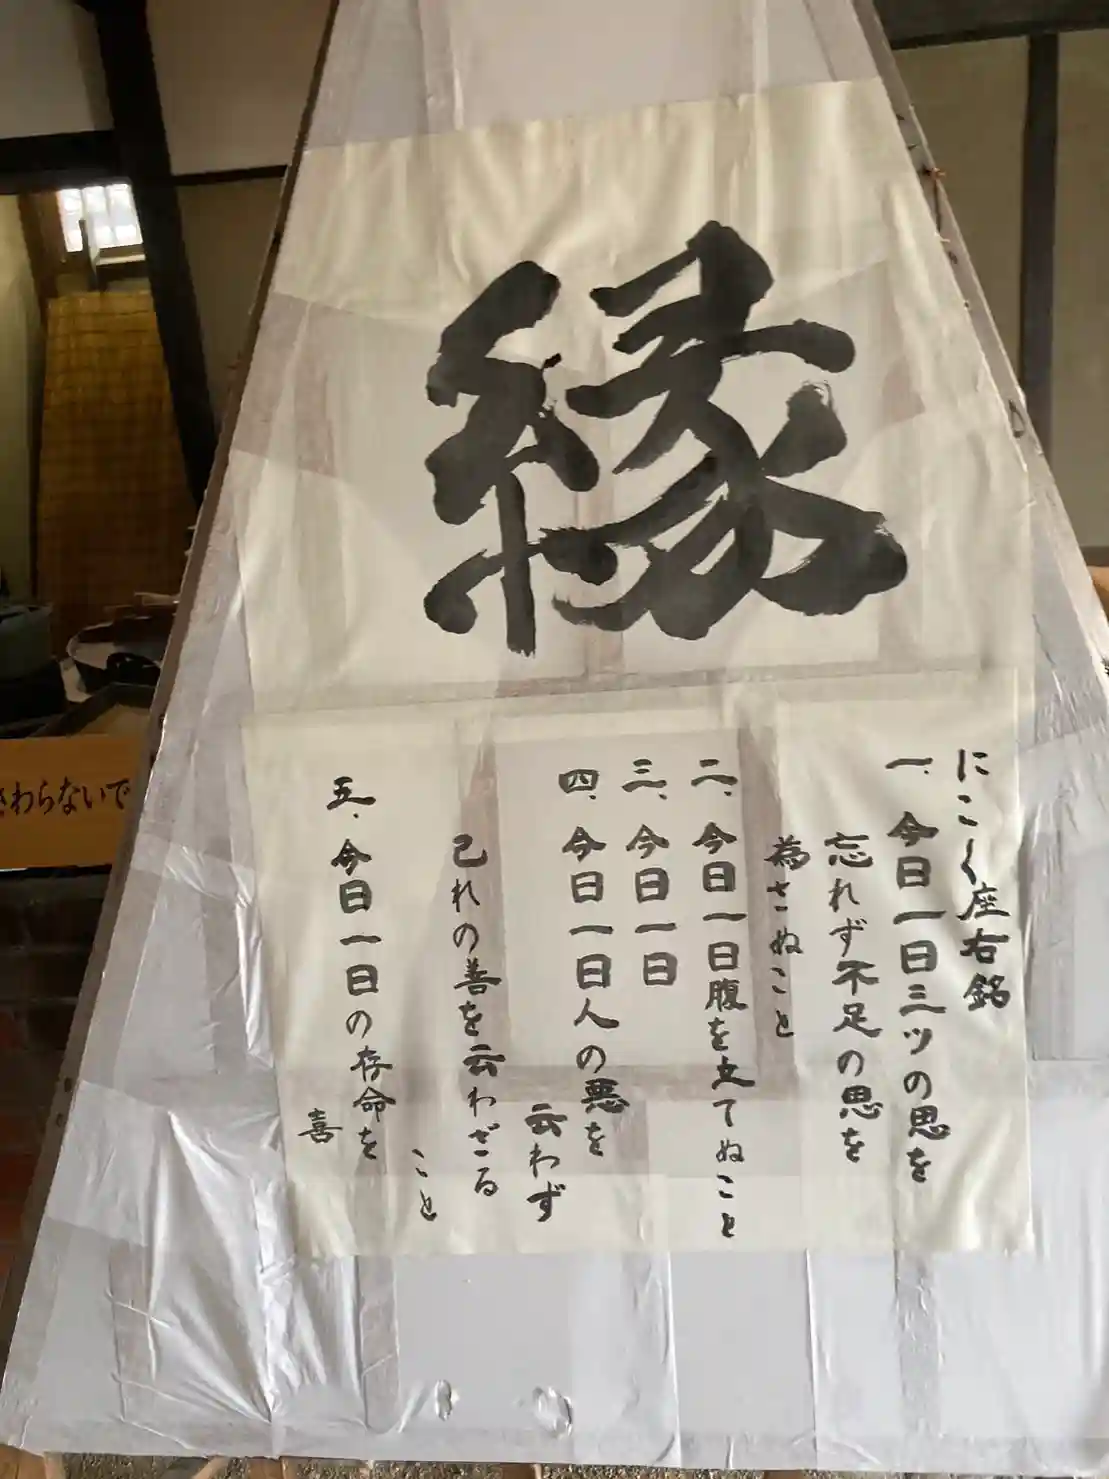 縁
にこく座右銘
一、今日一日三ツの思を
忘れず不足の思を
為さぬこと
二、今日一日腹を立てぬこと
三、今日一日
四、今日一日人の悪を
云わず
己れの善を云わざる
こと
五、今日一日の存命を
喜
さわらないで